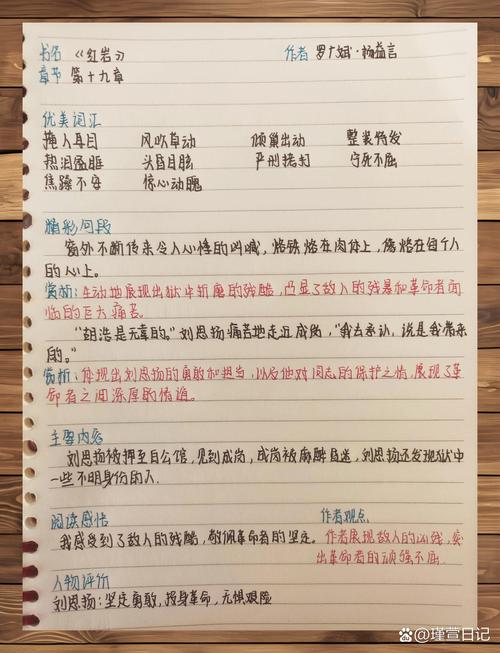 书名 《红岩》 作者 罗广斌·杨益言
章节 第十九章
优美词汇
掩人耳目 风吹草动 倾巢出动 整装待发
热泪盈眶 头昏目眩 严刑拷打 宁死不屈
焦躁不安 惊心动魄
精彩句段
窗外不断传来令人心悸的叫喊,烙铁烙在肉体上,像烙在每个人
的心上。
赏析:生动地展现出狱中折磨的残酷,凸显了敌人的残暴和革命者面
临的巨大痛苦。
“胡浩是无辜的。”刘思扬痛苦地走近成岗,“我去承认,说是我带来
的。”
赏析:体现出刘思扬的勇敢和担当,以及他对同志的保护之情,展现了革
命者之间深厚的情谊。
主要内容
刘思扬被押至白公馆,见到成岗,成岗被麻醉昏迷,刘思扬还发现狱中
一些不明身份的人.
阅读感悟 作者观点
我感受到了敌人的残酷,敬佩革命者的坚定。 作者展现敌人的凶残,突
出革命者的顽强不屈.
人物评价
刘思扬:坚定勇敢,投身革命,无惧艰险
瑾萱日记